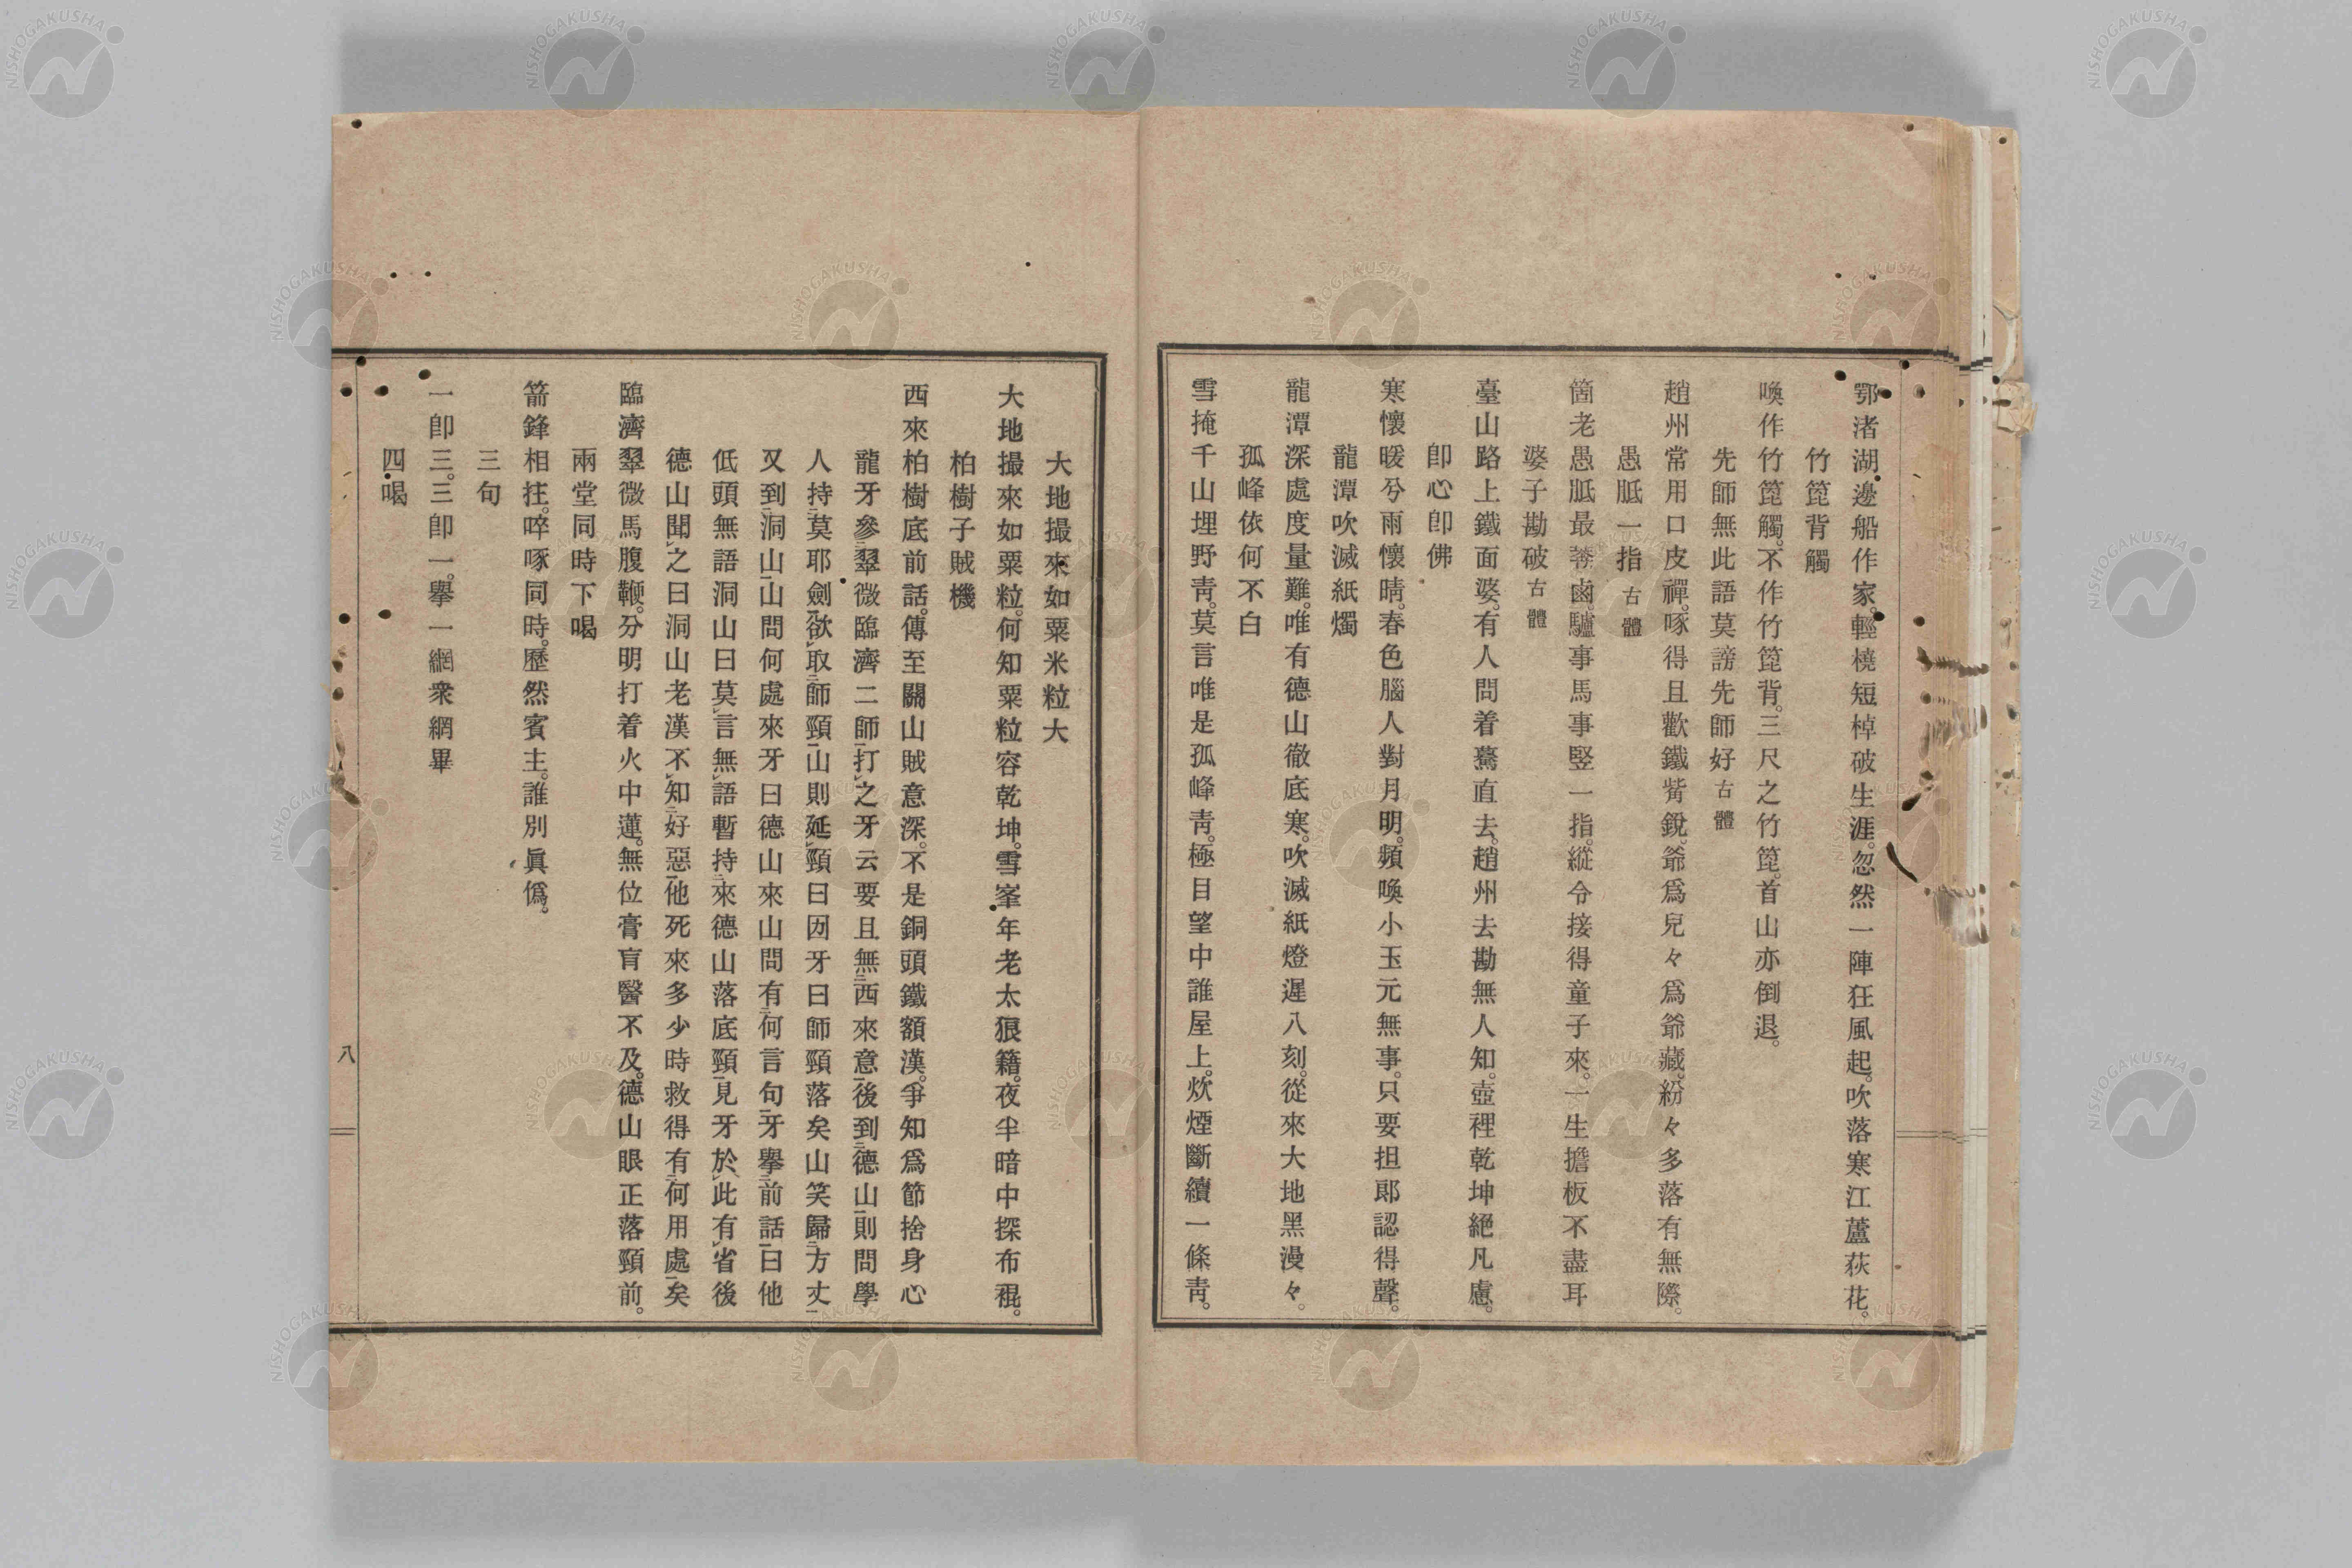 鄂渚湖邊船作家。輕橈短棹破生涯。忽然一陣狂風起。吹落寒江蘆荻花。
竹箆背觸
喚作竹箆觸。不作竹箆背。三尺之竹箆。首山亦倒退。
先師無此語莫謗先師好 古體
趙州常用口皮禪。啄得且歡鐵觜銳。爺爲兒々爲爺藏。紛々多落有無際。
愚胝一指 古體
箇老愚胝最莽鹵。驢事馬事竪一指。縱令接得童子來。一生擔板不盡耳
婆子勘破 古體
臺山路上鐵面婆。有人問着驀直去。趙州去勘無人知。壺裡乾坤絕凡慮。
卽心卽佛
寒懷暖兮雨懷晴。春色腦人對月明。頻喚小玉元無事。只要担郞認得聲。
龍潭吹滅紙燭
龍潭深處度量難。唯有德山徹底寒。吹滅紙燈遲八刻。從來大地黑漫々。
孤峰依何不白
雪掩千山埋野靑。莫言唯是孤峰靑。極目望中誰屋上。炊煙斷續一條靑。
大地撮來如粟米粒大
大地撮來如粟粒。何知粟粒容乾坤。雪峯年老太狼籍。夜半暗中探布裩。
柏樹子賊機
西來柏樹底前話。傳至關山賊意深。不是銅頭鐵額漢。爭知爲節捨身心
龍牙參翠微臨濟二師打之牙云要且無西來意後到德山則問學
人持莫耶劍欲取師頸山則延頸曰囡牙曰師頸落矣山笑歸方丈
又到洞山山問何處來牙曰德山來山問有何言句牙擧前話曰他
低頭無語洞山曰莫言無語暫持來德山落底頸見牙於此有省後
德山聞之曰洞山老漢不知好惡他死來多少時救得有何用處矣
臨濟翠微馬腹鞭。分明打着火中蓮。無位膏肓醫不及。德山眼正落頸前。
兩堂同時下喝
箭鋒相拄。啐啄同時。歷然賓主。誰別眞僞。
三句
一卽三。三卽一。擧一網衆網畢
四喝
八